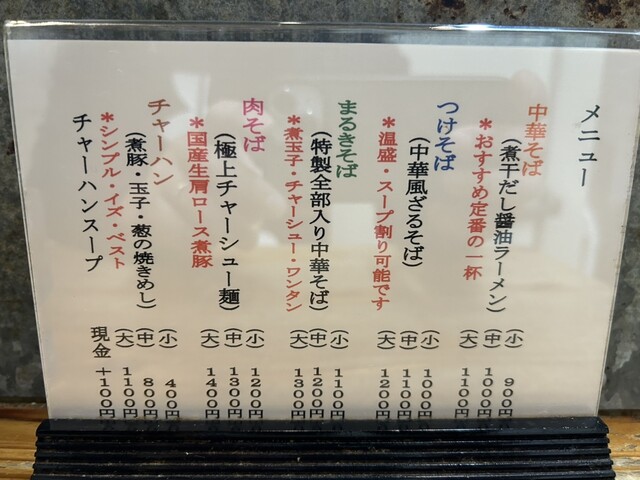 メニュー
中華そば
(煮干だし醤油ラーメン)
(小) 900円
(中) 1000円
*おすすめ定番の一杯
(大) 1100円
つけそば
(中華風ざるそば)
(小) 1000円
(中) 1100円
*温盛・スープ割り可能です
(大) 1200円
まるきそば
(特製全部入り中華そば)
(小) 1100円
(中) 1200円
*煮玉子・チャーシュー・ワンタン
(大) 1300円
肉そば
(極上チャーシュー麺)
(小) 1200円
(中) 1300円
*国産生肩ロース煮豚
(大) 1400円
チャーハン
(煮豚・玉子・葱の焼きめし)
(小) 400円
(中) 800円
*シンプル・イズ・ベスト
(大) 1100円
チャーハンスープ
現金 +100円